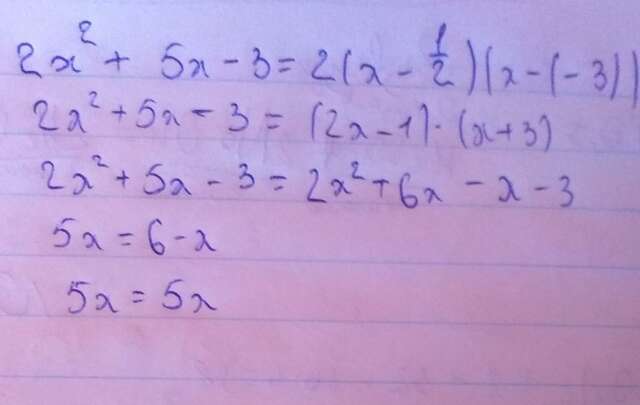 2x² + 5x - 3 = 2(x - 1/2)(x - (-3))
2x² + 5x - 3 = (2x - 1) · (x + 3)
2x² + 5x - 3 = 2x² + 6x - x - 3
5x = 6 - x
5x = 5x